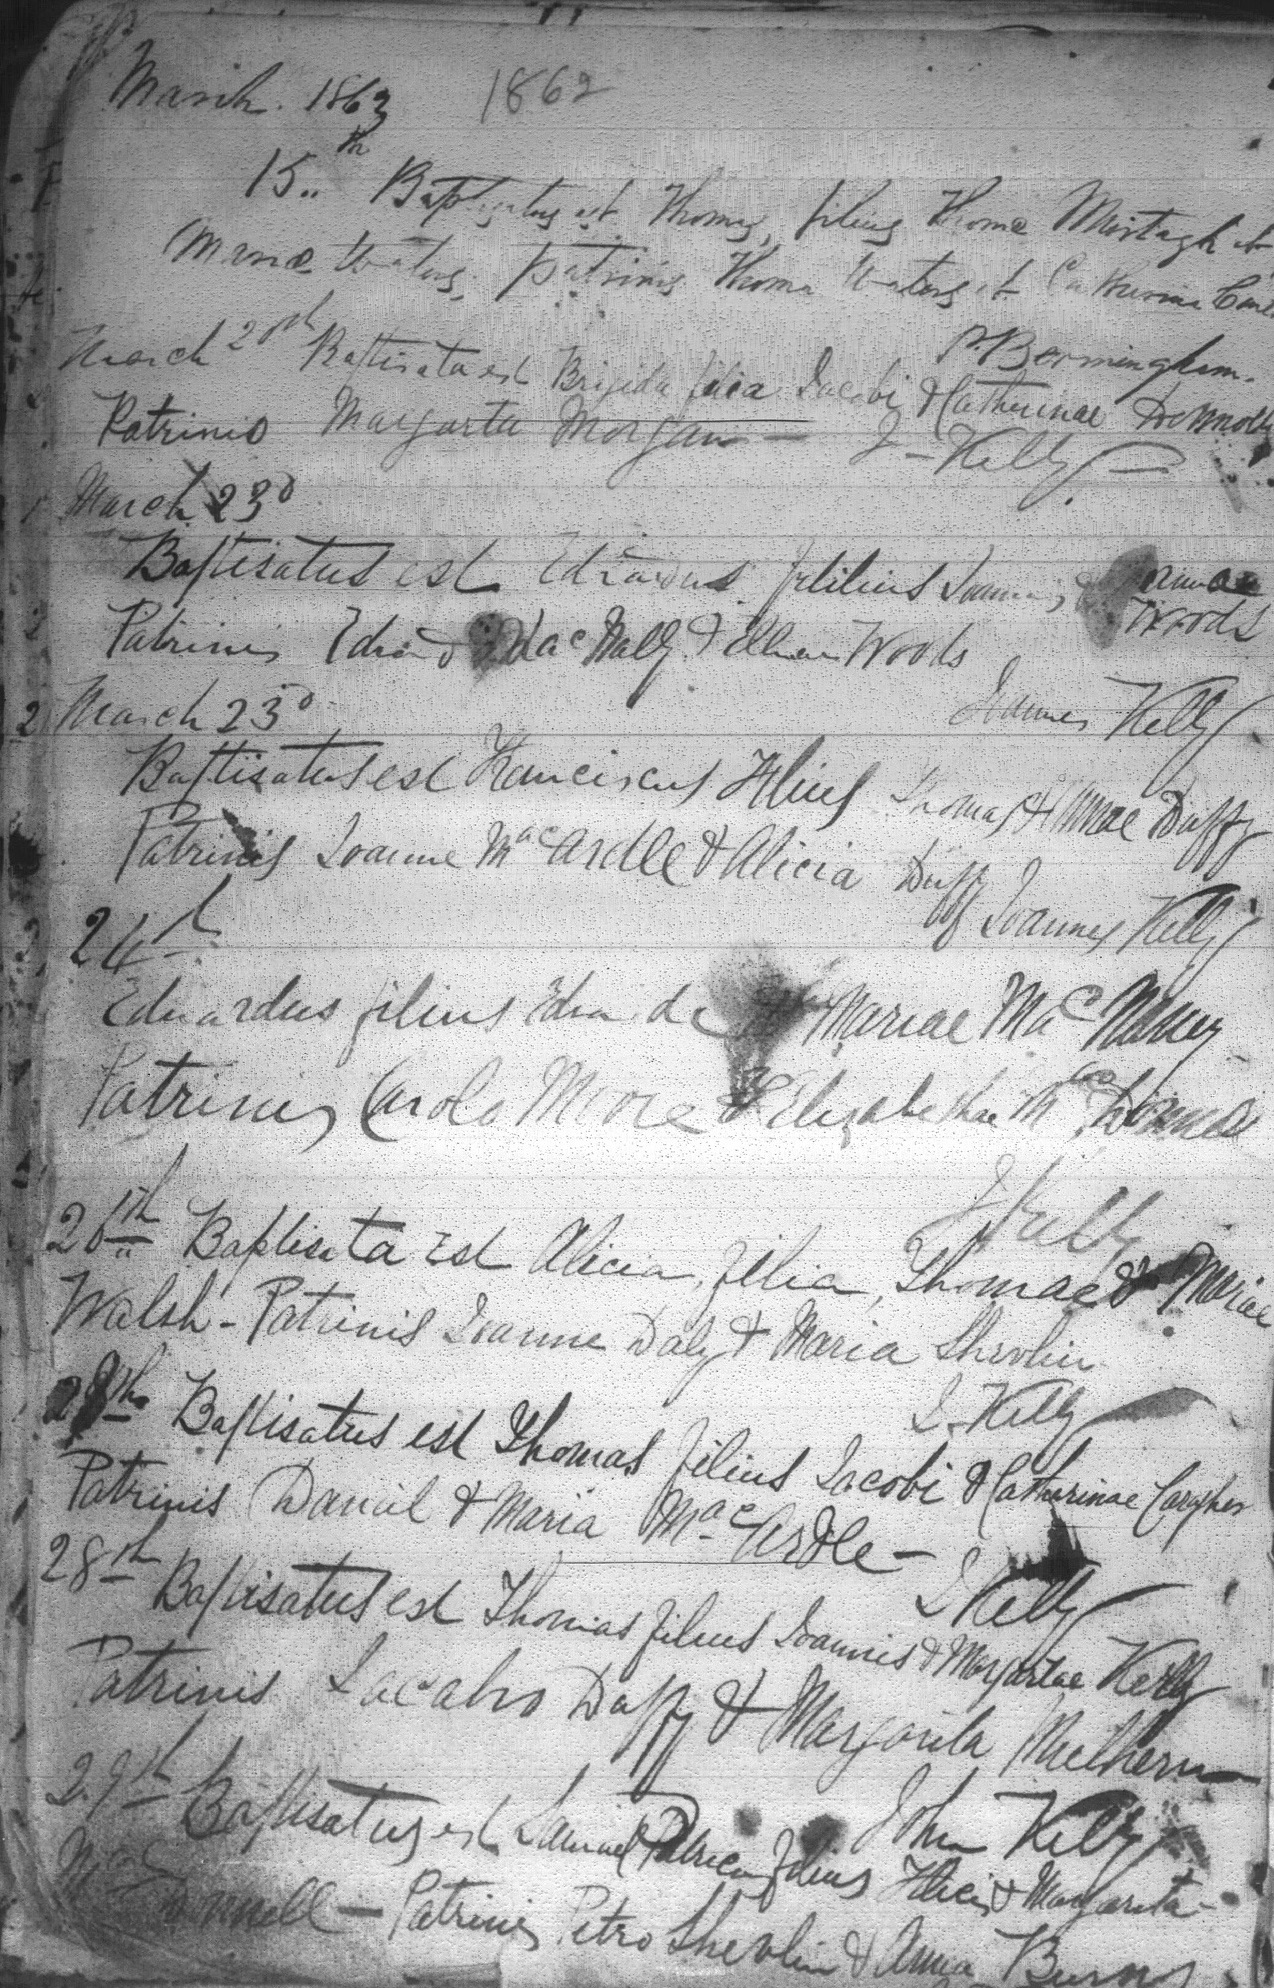 March. 1863 1862
15th Baptizatus est Thomas, filius Thoma Murtagh et
Mariæ Waters, patrinis Thoma Waters et Catherina
P. Bermingham.
March 20th Baptisata est Brigida filia Jacobi & Catherinae Donnolly
Patrinio Margarta Morgan — J - Kelly
March 23d
Baptisatus est Edvardus filius Joannis & annae
Woods
Patrinis Edvardo MacNally & Ellen Woods
Joannes Kelly
March 23d
Baptisatus est Franciscus Filius Thomas & Annae Duffy
Patrinis Joanne MacArdle & Alicia Duffy Joannes Kelly
24th
Eduardus filius Edvarde & Mariae Mac
Patrinis Carolo Moore & Elizabethae
J Kelly
26th Baptisata Est Alicia, filia, Thomae & Mariae
Walsh - Patrinis Joanne Daly & Maria Shevlin
J. Kelly
28th Baptisatus est Thomas filius Jacobi & Catharinae
Patrinis Daniel & Maria MacArdle —
J Kelly
28th Baptisatus est Thomas filius Joannis & Margartae Kelly
Patrinis Jacabo Duffy & Margarita
John Kelly
29th Baptisatus est Samuel filius & Margarita
Patrinis Petro Shevlin & Anna Burns